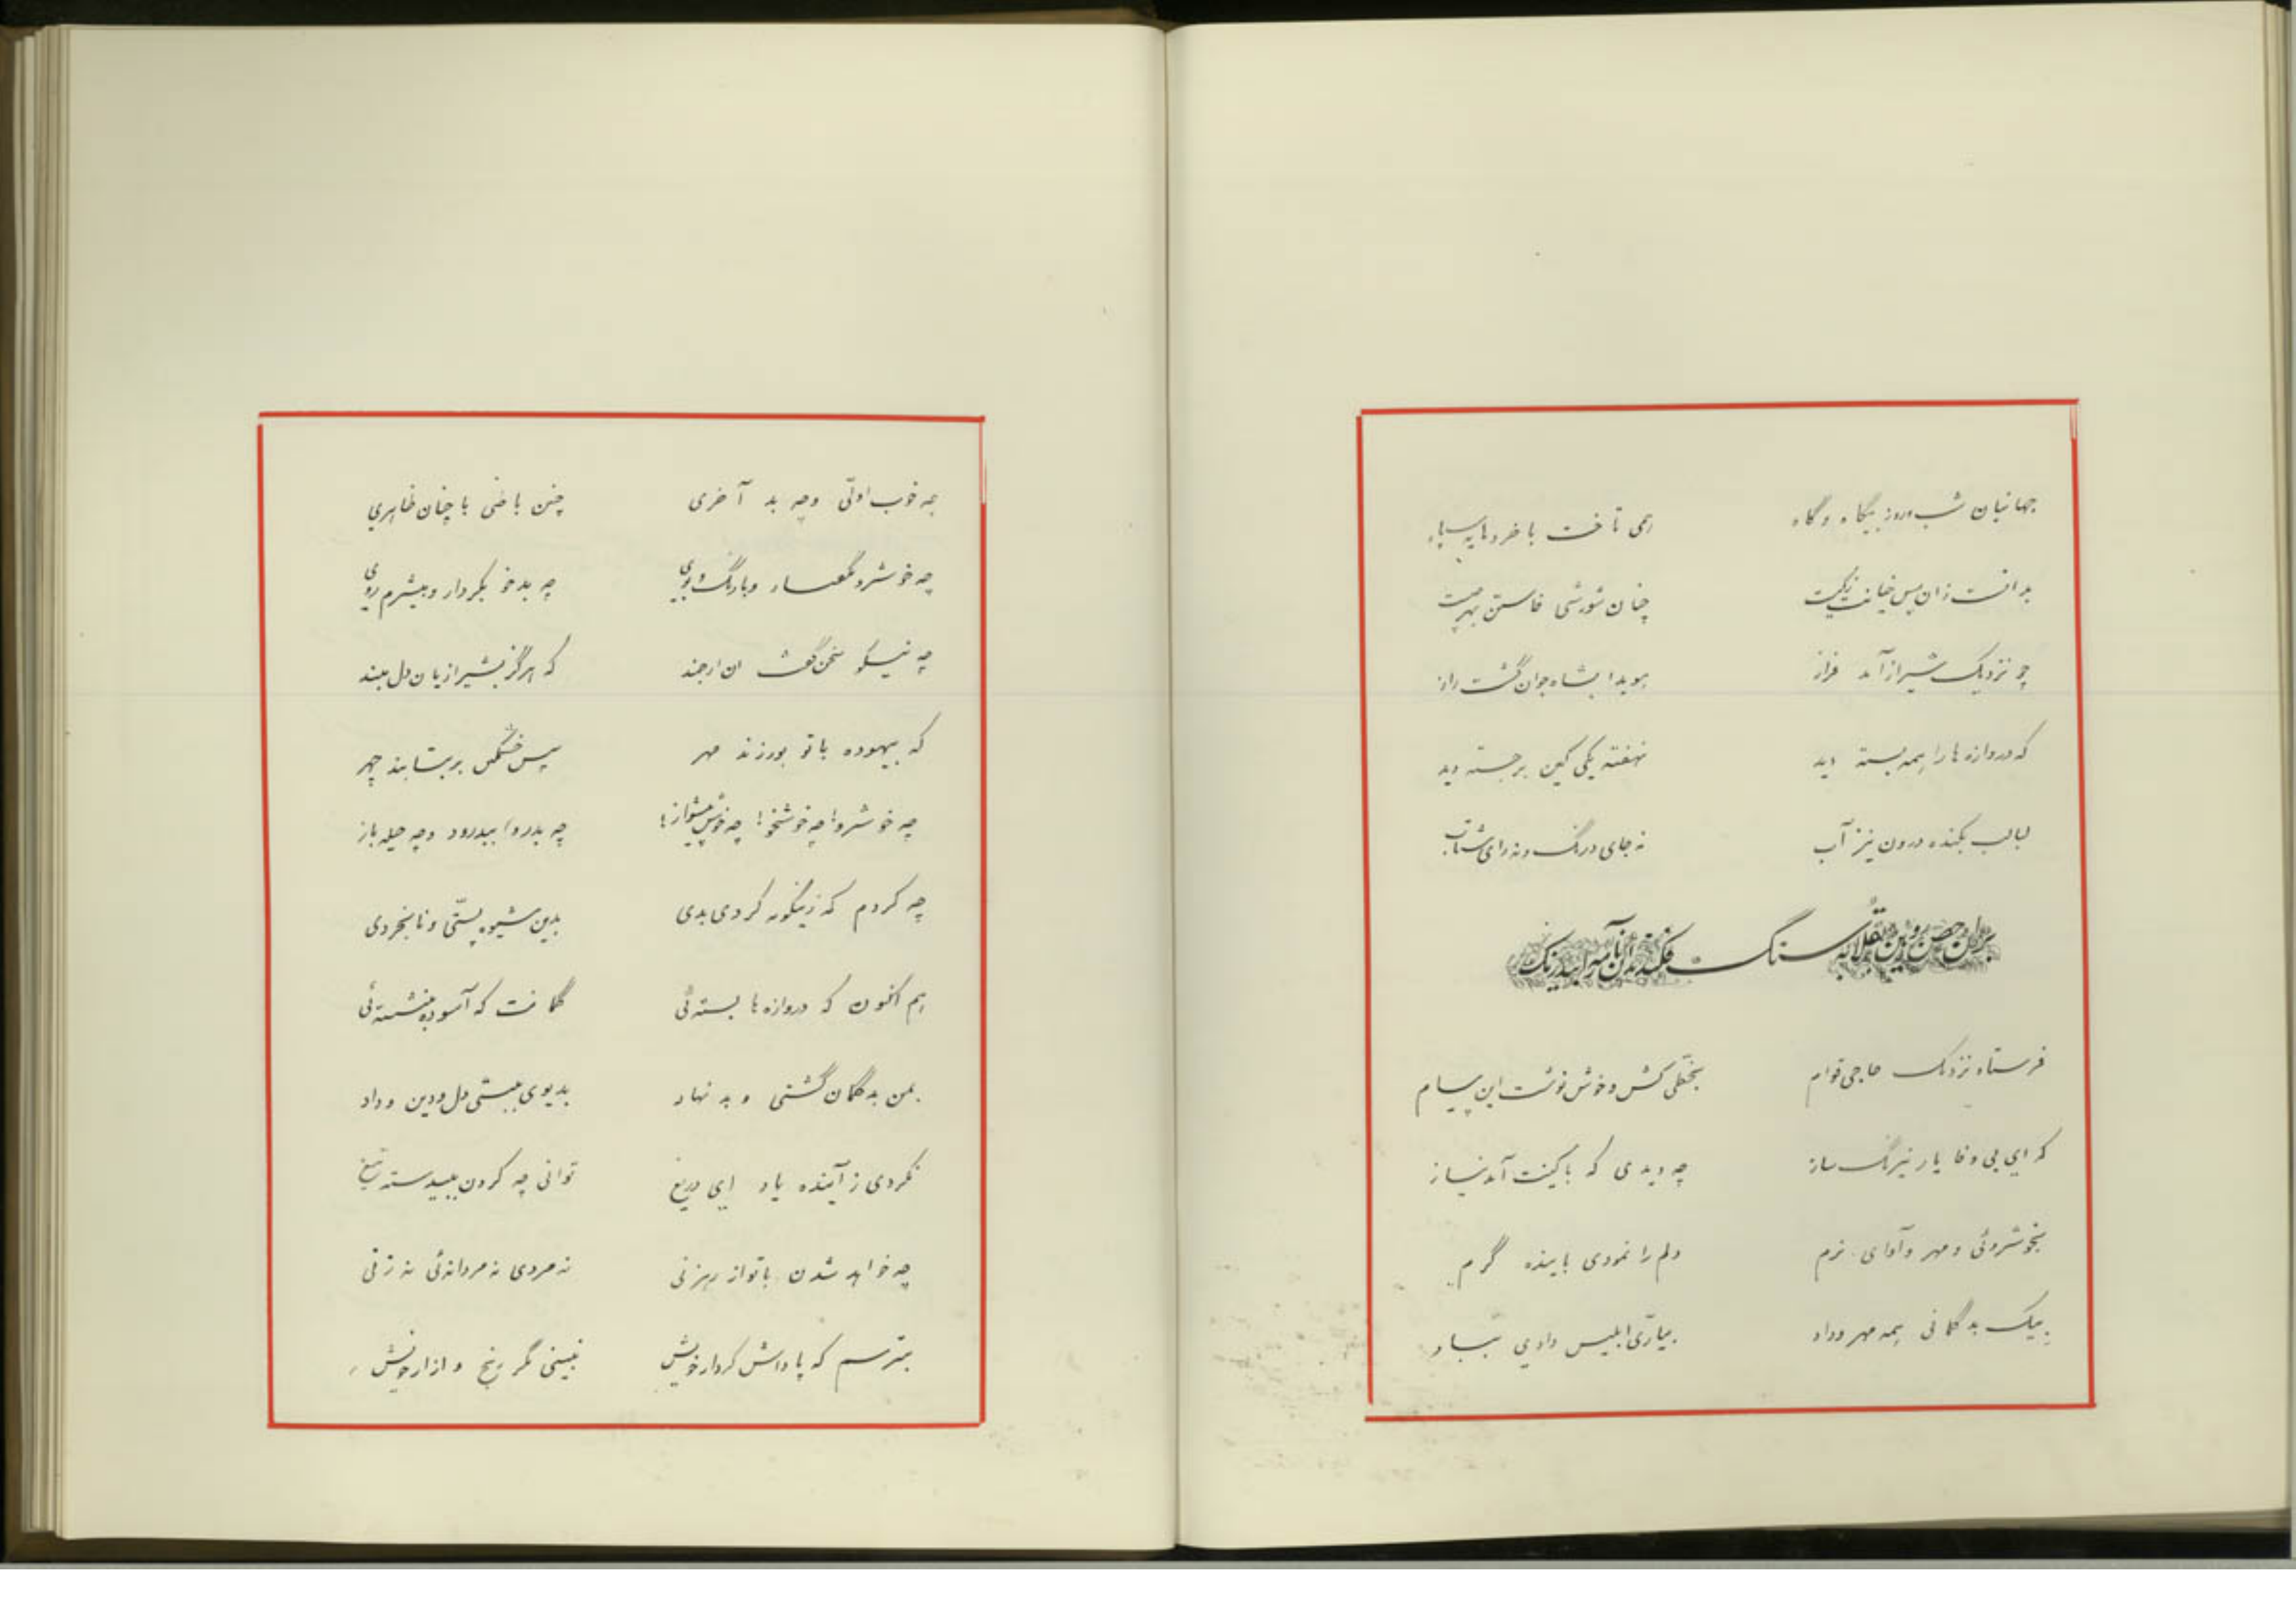 جهانبان شب و روز بیگاه و گاه همی تاخت با خرد مایه سپاه
بدانست زان پس خیانت ز کیست چنان شورشی خاستن بهر چیست
چو نزدیک شیراز آمد فراز هویدا بشاه جوان گشت راز
که دروازه ها را همه بسته دید نهفته یکی کین برجسته دید
لبالب بکنده درون نیز آب نه جای درنگ و نه رای شتاب
بر آن حصن رویین بقلاب سنگ فکندند آن نامه را بیدرنگ
فرستاد نزدیک حاجی قوام بخطی کش و خوش نوشت این پیام
که ای بی وفا یار نیرنگ ساز چه دیدی که با کینت آمد نیاز
بخوشروئی و مهر و آوای نرم دلم را نمودی باینده گرم
بیک بدگمانی همه مهر و داد بیاری ابلیس دادی بباد
چه خوب اولی و چه بد آخری چنین باطنی با چنان ظاهری
چه خوشرو بگفتار و با رنگ و بوی چه بدخو بکردار و بیشرم روی
چه نیکو سخن گفت ان ارجمند که هرگز بشیرازیان دل مبند
که بیهوده با تو بورزند مهر پس خشمگین برتابند چهر
چه خوشرو! چه خوشخو! چه خوش پیشواز! چه بدرو! ببدرود و چه حیله باز
چه کردم که زینگونه کردی بدی بدین شیوه پستی و نابخردی
هم اکنون که دروازه ها بسته ئی گمانت که آسوده بنشسته ئی
بمن بدگمان گشتی و بد نهاد بدیوی ببستی دل و دین و داد
نکردی ز آینده یاد ای دریغ توانی چه کردن ببیدسته تیغ
چه خواهد شدن با تو از رهزنی نه مردی نه مردانه ئی نه زنی
بترسم که پاداش کردار خویش نبینی مگر رنج و ازار خویش